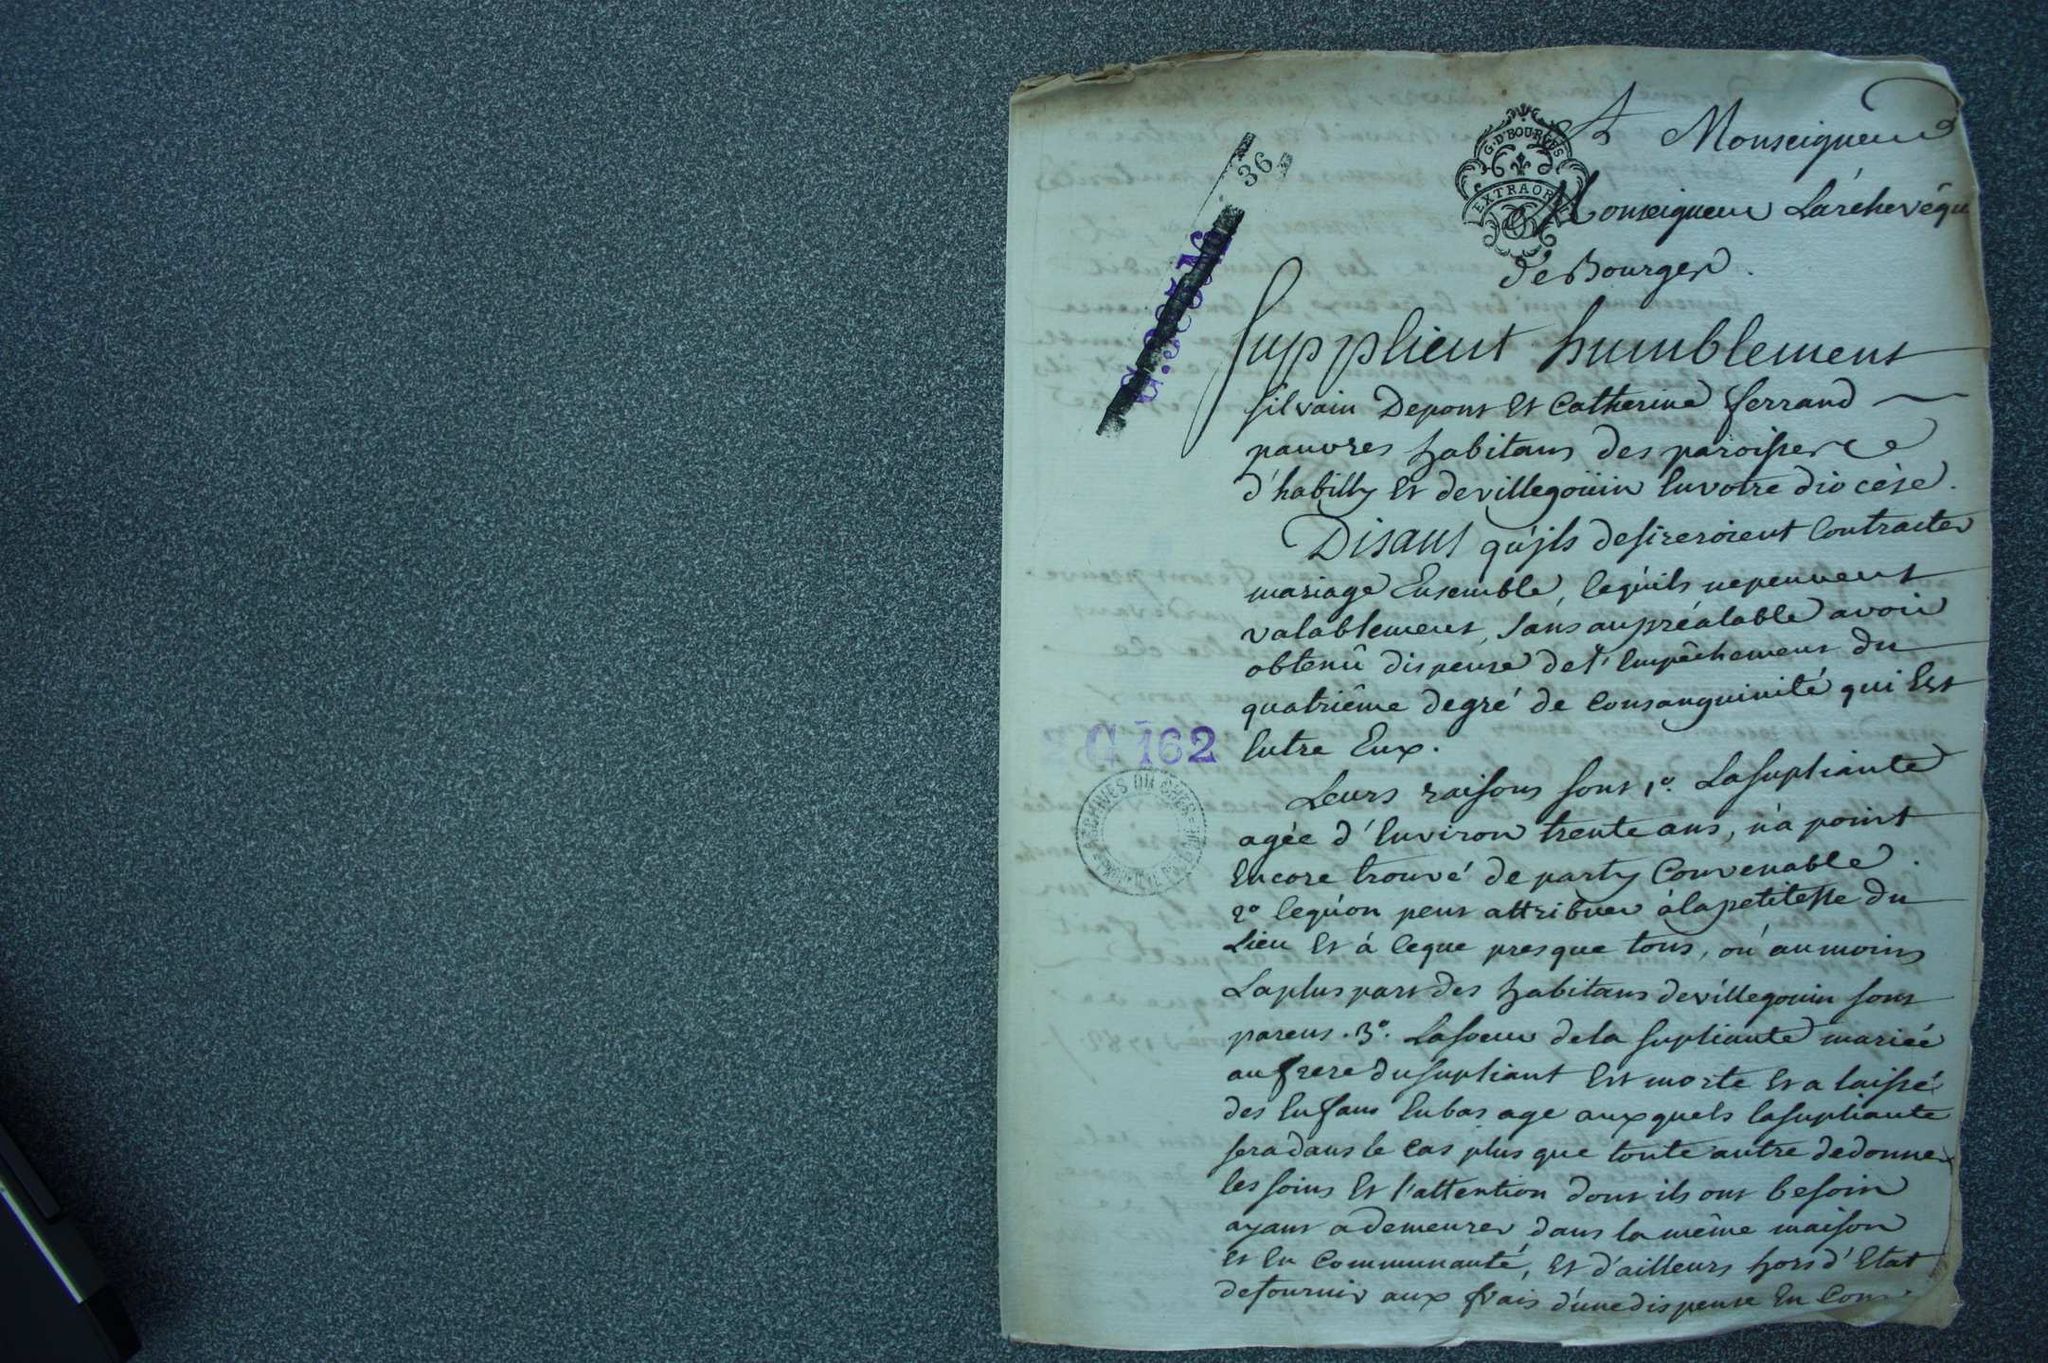 A Monseigneur
G. D'BOURGES
EXTRAOR
Monseigneur L'arehevêqu
de Bourges.
36
Supplient humblement
silvain Depont Et Catherine ferrand
pauvres habitans des paroisses
d'habilly Et devillegoüin Envotre diocése.
Disant qu'jls desireroient Contracter
mariage Ensemble, cequ'ils nepeuvent
valablement, sans aupréalable avoir
obtenû dispense de l'Empêchement du
quatriême degré de Consanguinité qui Est
Entre Eux.
G 162
Leurs raisons sont 1.º Lasupliante
agée d'Environ trente ans, n'a point
Encore trouvé de party Convenable.
2º cequ'on peut attribuer àlapetitesse du
Lieu Et à ceque presque tous, où aumoins
Laplus part des habitans devillegouin sont
parens. 3º. Lasoeur dela supliante mariée
aufrere dusupliant Est morte Et a laissé
des Enfans Enbas age auxquels lasupliante
sera dans le cas plus que toute autre dedonner
les soins Et l'attention dont ils ont besoin
ayant a demeurer dans la même maison
Et En Communauté, Et d'ailleurs hors d'Etat
defournir aux frais d'unedispense En Cour